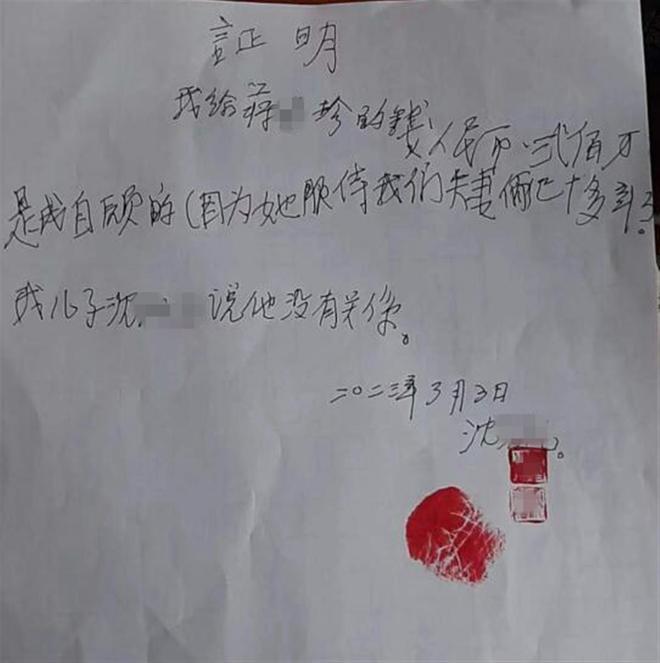 証明
我给蒋 珍的錢人民币、弍佰万
是我自願的(因为她服侍我们夫妻俩已十多年了。
我儿子沈 说他没有关係。
二〇二三年3月3日
沈 。